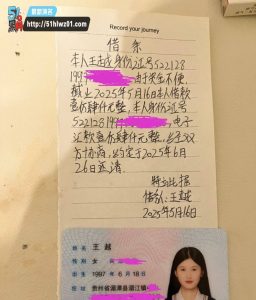 黑料海角
http://51hlwz01.com
Record your journey
借条
本人王越身份证号522128
199
由于来生不便
截止2025年5月16日本人借款
壹伤肆仟元整,本人身份证号
522128199
,电子
汇款壹伤肆仟元整,
方协商,约定于2025年6月
26日还清。
特立此据
借款人:王越
2025年5月16日
姓名 王越
性别 女
出生 1997 年 6 月 18 日
住址 贵州省湄潭县湄江镇